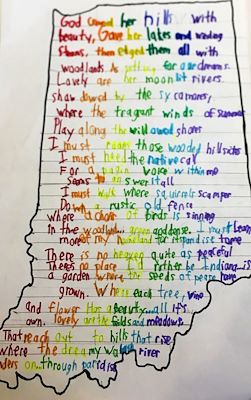 God crowned her hills with
beauty, Gave her lakes and winding
streams, then edged them all with
woodlands As setting for our dreams.
Lovely are her moon lit rivers.
shadowed by the sycamores,
where the fragrant winds of summer
Play along the willowed shores
I must roam those wooded hillsides
I must heed the native call
For a pagan voice within me
seems to answer it all
I must walk where squirrels scamper
Down a rustic old fence
where a choir of birds is singing
In the woodland... green and dense. I must learn
more of my homeland for its paradise to me
There is no heaven quite as peaceful
There's no place I'd rather be Indiana is
a garden where the seeds of peace have
grown. Where each tree, vine
and flower Has a beauty...all it's
own. lovely are the fields and meadows
That reach out to hills that rise
where the dreamy Wabash river
wanders on...through paradise